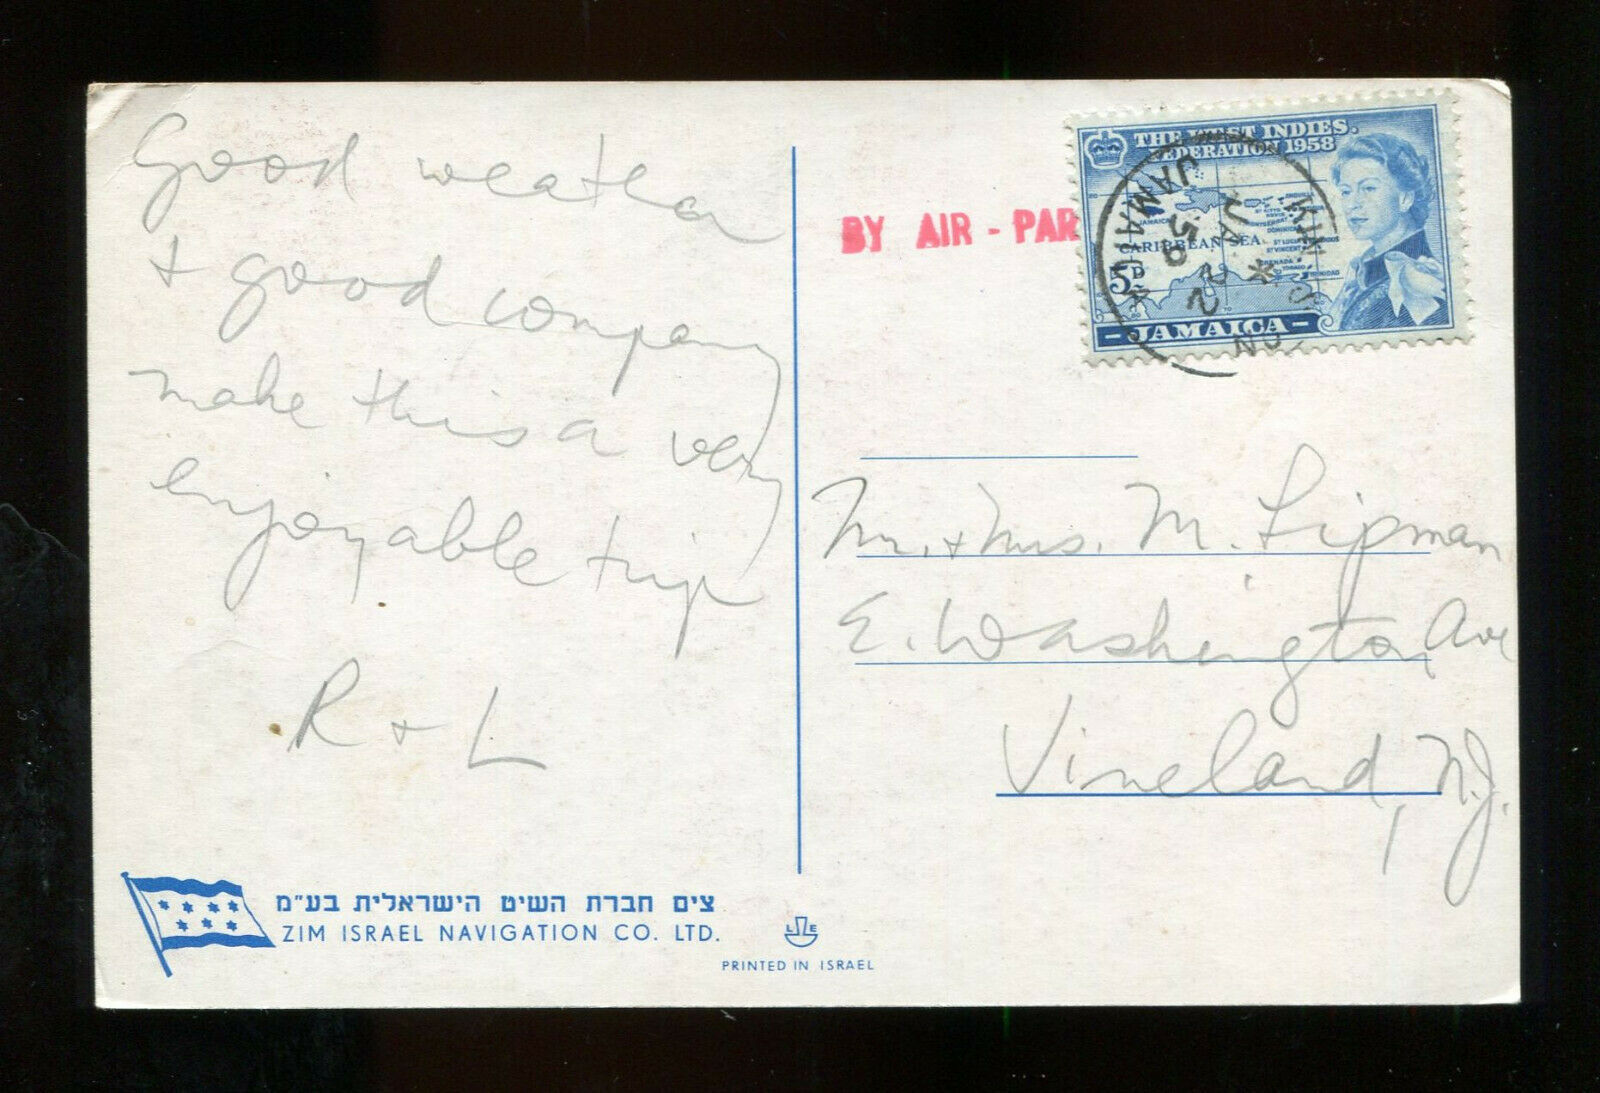 Good weather
+ good company
make this a very
enjoyable trip
R + L
צים חברת השיט הישראלית בע"מ
ZIM ISRAEL NAVIGATION CO. LTD.
L E
PRINTED IN ISRAEL
BY AIR - PAR
THE WEST INDIES.
FEDERATION 1958
CARIBBEAN SEA
5D
- JAMAICA -
KINGSTON
JA 22
59
JAMAICA
Mr. + Mrs. M. Lipman
E. Washington Ave
Vineland, N.J.